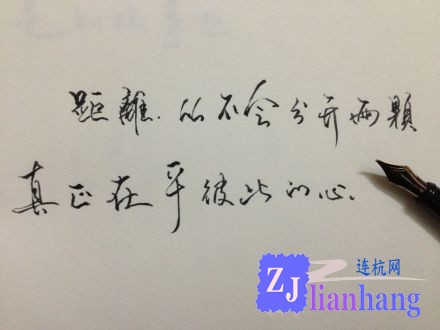 距離.从不会分开两颗
真正在乎彼此的心.
连杭网
ZJ lianhang